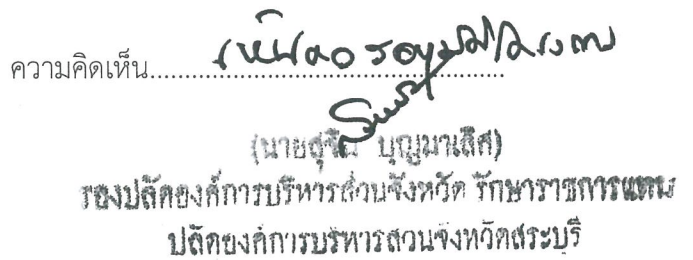 ความคิดเห็น..................................................
(นายสุจิน บุญมาเลิศ)
รองปลัดองค์การบริหารส่วนจังหวัด รักษาราชการแทน
ปลัดองค์การบริหารส่วนจังหวัดสระบุรี